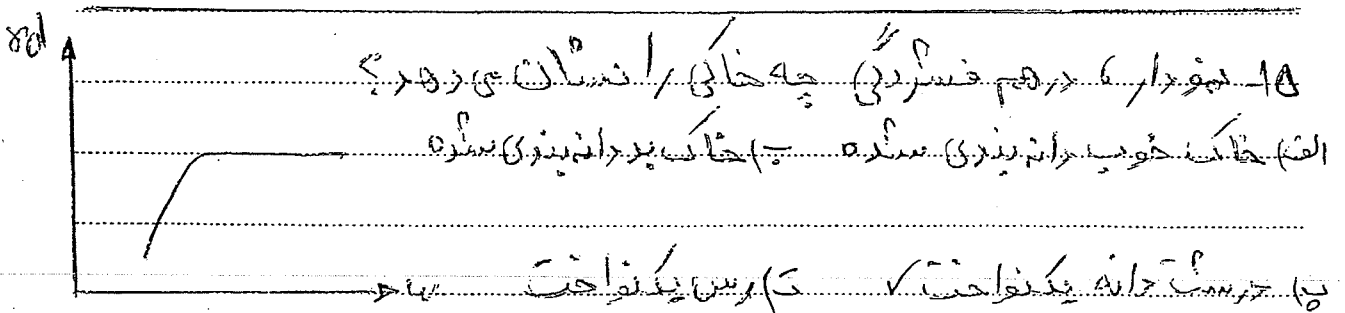 γd
۱۵- نمودار، درهم فشردگی چه خاکی را نشان می دهد؟
الف) خاک خوب دانه بندی شده ب) خاک بد دانه بندی شده
پ) درشت دانه یکنواخت ✓ ت) رس یکنواخت